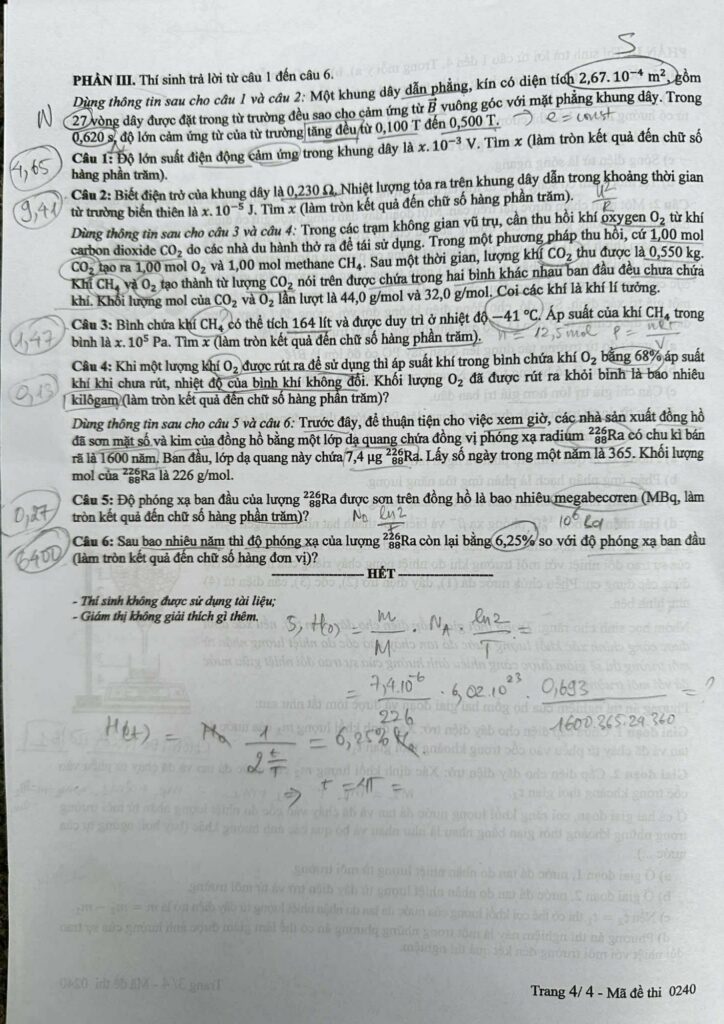 S
PHẦN III. Thí sinh trả lời từ câu 1 đến câu 6.
Dùng thông tin sau cho câu 1 và câu 2: Một khung dây dẫn phẳng, kín có diện tích 2,67.10⁻⁴ m², gồm
N 27 vòng dây được đặt trong từ trường đều sao cho cảm ứng từ B⃗ vuông góc với mặt phẳng khung dây. Trong
0,620 s, độ lớn cảm ứng từ của từ trường tăng đều từ 0,100 T đến 0,500 T. → e = const
4,65 Câu 1: Độ lớn suất điện động cảm ứng trong khung dây là x.10⁻³ V. Tìm x (làm tròn kết quả đến chữ số
hàng phần trăm).
9,41 Câu 2: Biết điện trở của khung dây là 0,230 Ω. Nhiệt lượng tỏa ra trên khung dây dẫn trong khoảng thời gian
từ trường biến thiên là x.10⁻⁵ J. Tìm x (làm tròn kết quả đến chữ số hàng phần trăm).
Dùng thông tin sau cho câu 3 và câu 4: Trong các trạm không gian vũ trụ, cần thu hồi khí oxygen O₂ từ khí
carbon dioxide CO₂ do các nhà du hành thở ra để tái sử dụng. Trong một phương pháp thu hồi, cứ 1,00 mol
CO₂ tạo ra 1,00 mol O₂ và 1,00 mol methane CH₄. Sau một thời gian, lượng khí CO₂ thu được là 0,550 kg.
Khí CH₄ và O₂ tạo thành từ lượng CO₂ nói trên được chứa trong hai bình khác nhau ban đầu đều chưa chứa
khí. Khối lượng mol của CO₂ và O₂ lần lượt là 44,0 g/mol và 32,0 g/mol. Coi các khí là khí lí tưởng.
1,47 Câu 3: Bình chứa khí CH₄ có thể tích 164 lít và được duy trì ở nhiệt độ −41 °C. Áp suất của khí CH₄ trong
bình là x.10⁵ Pa. Tìm x (làm tròn kết quả đến chữ số hàng phần trăm). n = 12,5mol
Câu 4: Khi một lượng khí O₂ được rút ra để sử dụng thì áp suất khí trong bình chứa khí O₂ bằng 68% áp suất
0,13 khí khi chưa rút, nhiệt độ của bình khí không đổi. Khối lượng O₂ đã được rút ra khỏi bình là bao nhiêu
kilôgam (làm tròn kết quả đến chữ số hàng phần trăm)?
Dùng thông tin sau cho câu 5 và câu 6: Trước đây, để thuận tiện cho việc xem giờ, các nhà sản xuất đồng hồ
đã sơn mặt số và kim của đồng hồ bằng một lớp dạ quang chứa đồng vị phóng xạ radium ²²⁶₈₈Ra có chu kì bán
rã là 1600 năm. Ban đầu, lớp dạ quang này chứa 7,4 μg ²²⁶₈₈Ra. Lấy số ngày trong một năm là 365. Khối lượng
mol của ²²⁶₈₈Ra là 226 g/mol.
0,27 Câu 5: Độ phóng xạ ban đầu của lượng ²²⁶₈₈Ra được sơn trên đồng hồ là bao nhiêu megabecơren (MBq, làm
tròn kết quả đến chữ số hàng phần trăm)? N₀ ln2/T 10⁶ Bq
6400 Câu 6: Sau bao nhiêu năm thì độ phóng xạ của lượng ²²⁶₈₈Ra còn lại bằng 6,25% so với độ phóng xạ ban đầu
(làm tròn kết quả đến chữ số hàng đơn vị)?
HẾT
- Thí sinh không được sử dụng tài liệu;
- Giám thị không giải thích gì thêm.
5, H(0) = m/M . N_A . ln2/T =
= 7,4.10⁻⁶/226 . 6,02.10²³ . 0,693/1600.365.24.360 = ?
H(t) = H₀ 1/2^(t/T) = 6,25% H₀
⇒ t = 4T =
Trang 4/ 4 - Mã đề thi 0240